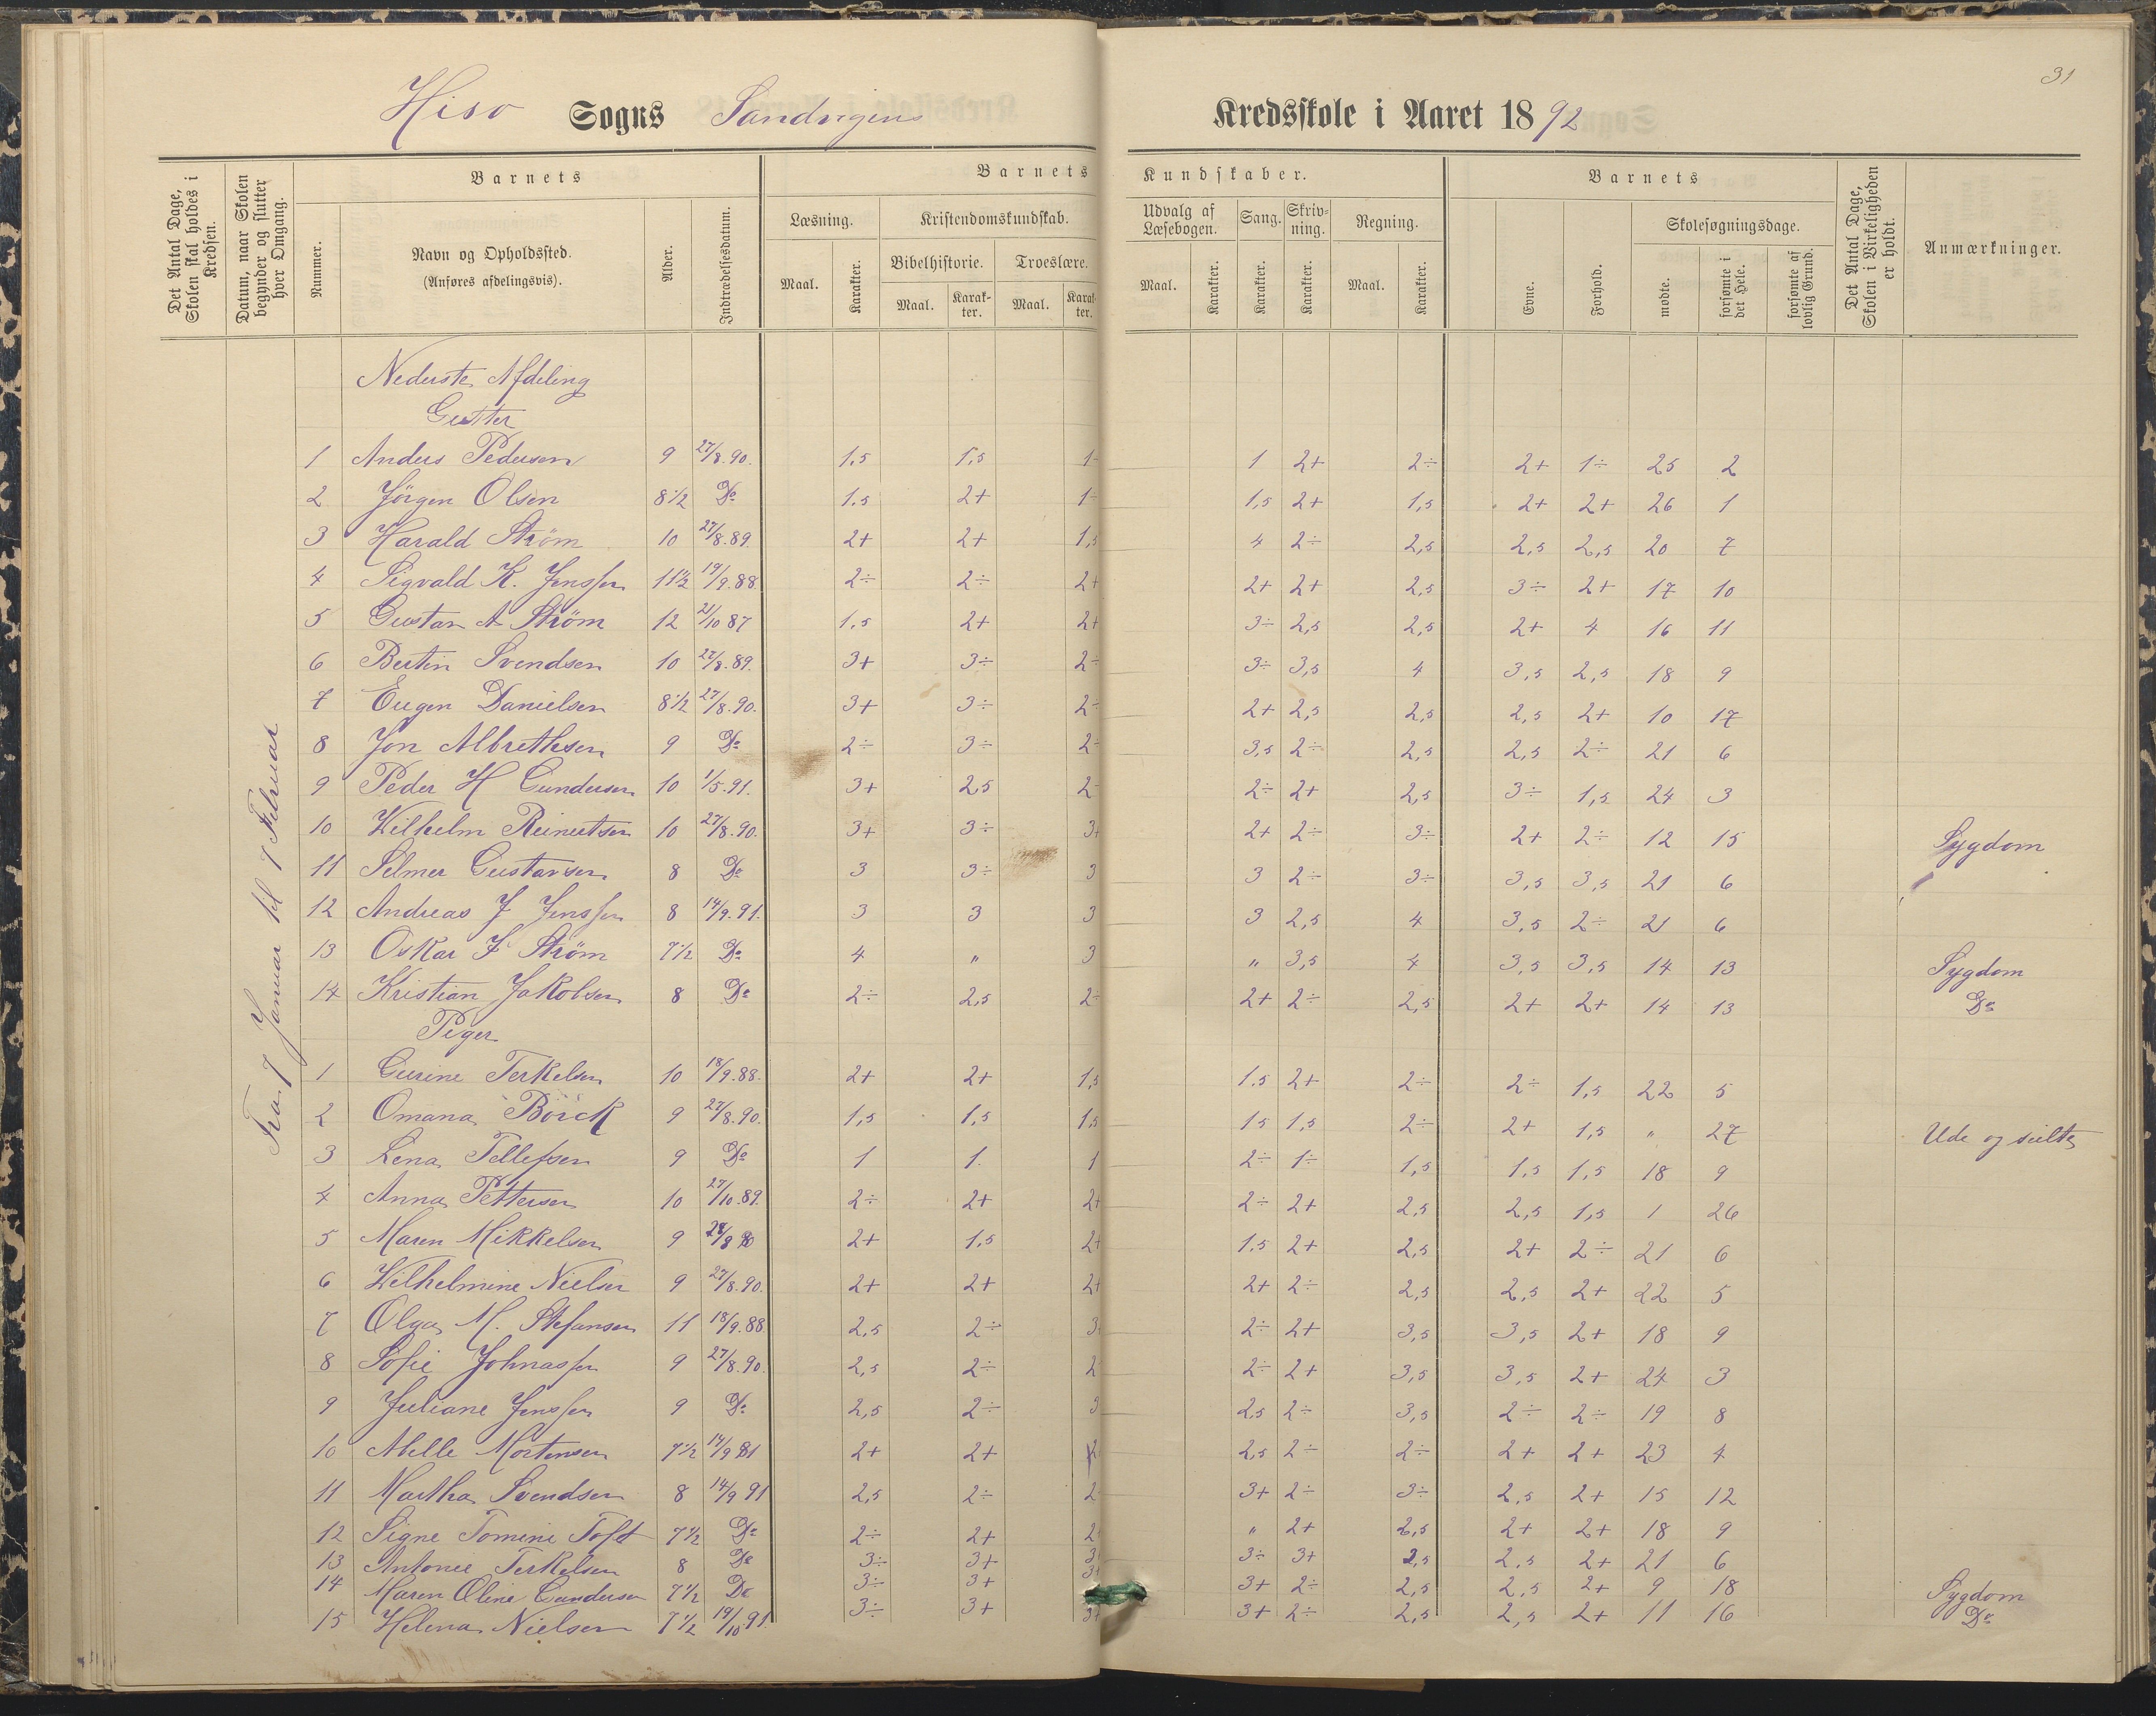 31
Hisø Sogns Sandvigens Kredsskole i Aaret 1892
Det Antal Dage, Skolen skal holdes i Kredsen.
Datum, naar Skolen begynder og slutter hver Omgang.
Barnets
Nummer.
Navn og Opholdssted.
(Anføres afdelingsvis).
Alder.
Indtrædelsesdatum.
Barnets Kundskaber.
Læsning.
Maal. Karakter.
Kristendomskundskab.
Bibelhistorie. Troeslære.
Maal. Karakter. Maal. Karakter.
Udvalg af Læsebogen.
Maal. Karakter.
Sang.
Karakter.
Skrivning.
Karakter.
Regning.
Maal. Karakter.
Barnets
Evne. Forhold.
Skolesøgningsdage.
mødte. forsømte i det Hele. forsømte af lovlig Grund.
Det Antal Dage, Skolen i Virkeligheden er holdt.
Anmærkninger.
Fra 7 Januar til 7 Februar
Nederste Afdeling
Gutter
1 Anders Pedersen 9 27/8.90. 1,5 1,5 1÷ 1 2+ 2÷ 2+ 1÷ 25 2
2 Jörgen Olsen 8½ Do 1.5 2+ 1÷ 1,5 2+ 1,5 2+ 2+ 26 1
3 Harald Strøm 10 27/8.89. 2+ 2+ 1,5 4 2÷ 2,5 2,5 2,5 20 7
4 Sigvald K. Jenssen 11½ 19/9.88 2÷ 2÷ 2+ 2+ 2+ 2,5 3÷ 2+ 17 10
5 Gustav A Strøm 12 21/10 87 1.5 2+ 2+ 3÷ 2,5 2,5 2+ 4 16 11
6 Bertin Svendsen 10 27/8.89. 3+ 3÷ 2÷ 3÷ 3,5 4 3,5 2,5 18 9
7 Eugen Danielsen 8½ 27/8.90. 3+ 3÷ 2÷ 2+ 2,5 2,5 2,5 2+ 10 17
8 Jon Albrethsen 9 Do 2÷ 3÷ 2÷ 3,5 2÷ 2,5 2,5 2÷ 21 6
9 Peder H Gundersen 10 1/5.91. 3+ 2,5 2÷ 2÷ 2+ 2,5 3÷ 1,5 24 3
10 Wilhelm Reinertsen 10 27/8.90. 3+ 3÷ 3+ 2+ 2÷ 3÷ 2+ 2÷ 12 15 Sygdom
11 Selmer Gustavsen 8 Do 3 3÷ 3 3 2÷ 3÷ 3,5 3,5 21 6
12 Andreas J Jenssen 8 14/9.91. 3 3 3 3 2,5 4 3,5 2÷ 21 6
13 Oskar F Strøm 7½ Do 4 " 3 " 3,5 4 3,5 3,5 14 13 Sygdom
14 Kristian Jakobsen 8 Do 2÷ 2,5 2÷ 2+ 2÷ 2,5 2+ 2+ 14 13 Do
Piger
1 Gurine Terkelsen 10 18/9.88. 2+ 2+ 1,5 1.5 2+ 2÷ 2÷ 1,5 22 5
2 Omana Böick 9 27/8.90. 1,5 1,5 1,5 1,5 1,5 2÷ 2+ 1,5 " 27 Ude og seilte
3 Lena Tellefsen 9 Do 1 1. 1 2÷ 1÷ 1,5 1,5 1,5 18 9
4 Anna Pettersen 10 27/10.89. 2÷ 2+ 2+ 2÷ 2+ 2,5 2,5 1,5 1 26
5 Maren Mikkelsen 9 27/8 90 2+ 1,5 2+ 1,5 2+ 2,5 2+ 2÷ 21 6
6 Wilhelmine Nielsen 9 27/8.90. 2+ 2+ 2+ 2+ 2÷ 2,5 2,5 2+ 22 5
7 Olga M. Stefansen 11 18/9.88 2,5 2÷ 3 2÷ 2+ 3,5 3,5 2+ 18 9
8 Sofie Johnassen 9 27/8.90. 2,5 2÷ 2 2÷ 2+ 3,5 3,5 2+ 24 3
9 Juliane Jenssen 9 Do 2,5 2÷ 3 2,5 2÷ 3,5 2÷ 2÷ 19 8
10 Mortensen 7½ 14/9 91 2+ 2+ 2,5 2÷ 2÷ 2+ 2+ 23 4
11 Martha Svendsen 8 14/9 91 2,5 2÷ 2 3+ 2÷ 3÷ 2,5 2+ 15 12
12 Signe Tomine Toft 7½ Do 2÷ 2+ 2+ " 2+ 2,5 2+ 2+ 18 9
13 Antonee Terkelsen 8 Do 3÷ 3+ 3 3÷ 3+ 2,5 2,5 2+ 21 6
14 Maren Oline Gundersen 7½ Do 3÷ 3+ 3+ 3+ 2÷ 2,5 2,5 2+ 9 18 Sygdom
15 Helena Nielsen 7½ 19/10.91. 3÷ 3+ 3+ 3+ 2÷ 2,5 2,5 2+ 11 16 Do